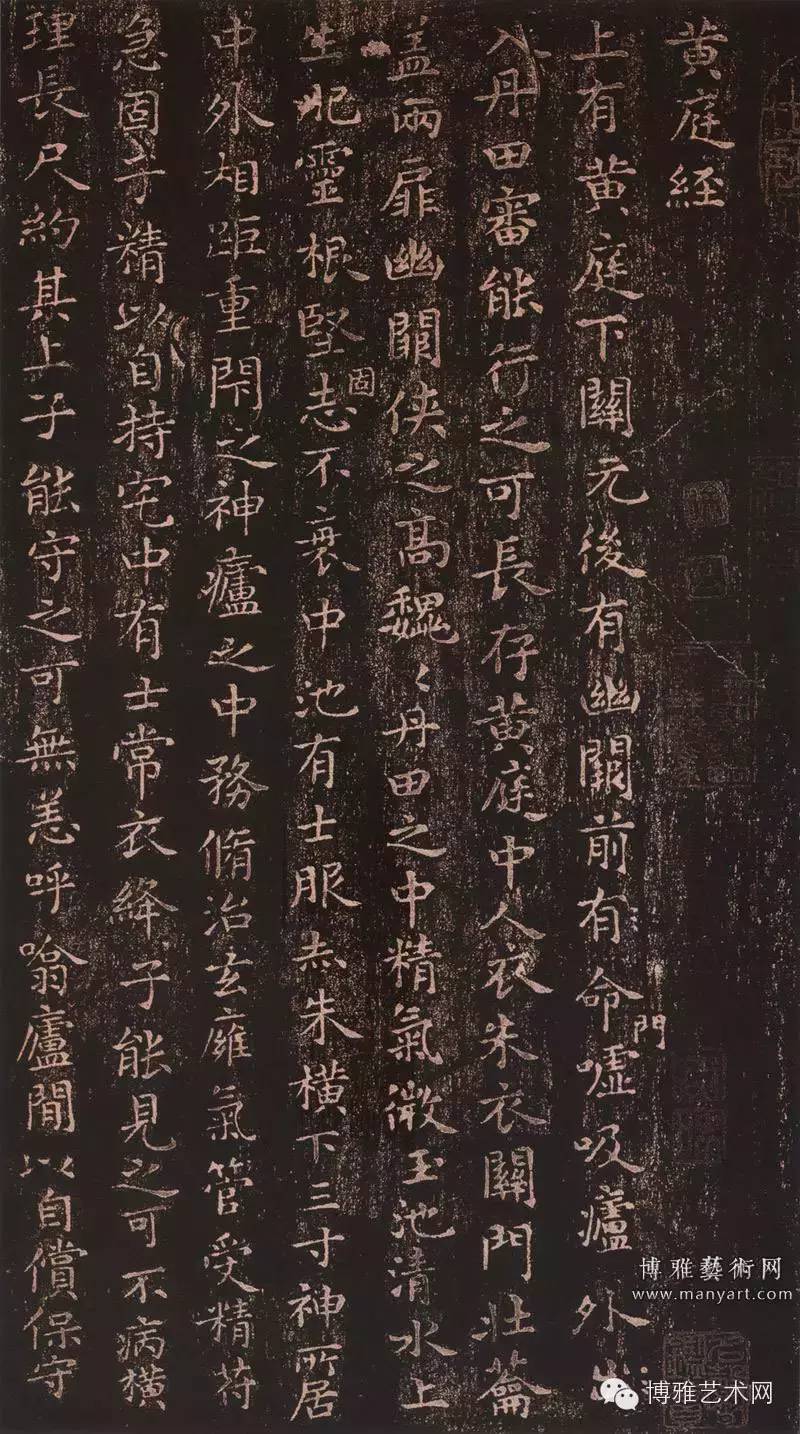 黄庭経
上有黄庭下關元後有幽闕前有命門噓吸廬外出
入丹田審能行之可長存黄庭中人衣朱衣關門壯蘥
盖兩扉幽闕俠之髙魏〻丹田之中精氣微玉池清水上
生肥靈根堅固志不衰中池有士服赤朱橫下三寸神所居
中外相距重閇之神廬之中務脩治玄廱氣管受精苻
急固子精以自持宅中有士常衣絳子能見之可不病橫
理長尺約其上子能守之可無恙呼噏廬閒以自償保守
博雅藝術网
www.manyart.com
博雅艺术网